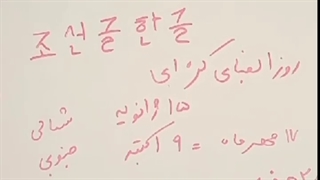 روز الفبای کره ای
۱۵ ژانویه شمالی
۱۷ مهرماه = ۹ اکتبر جنوبی